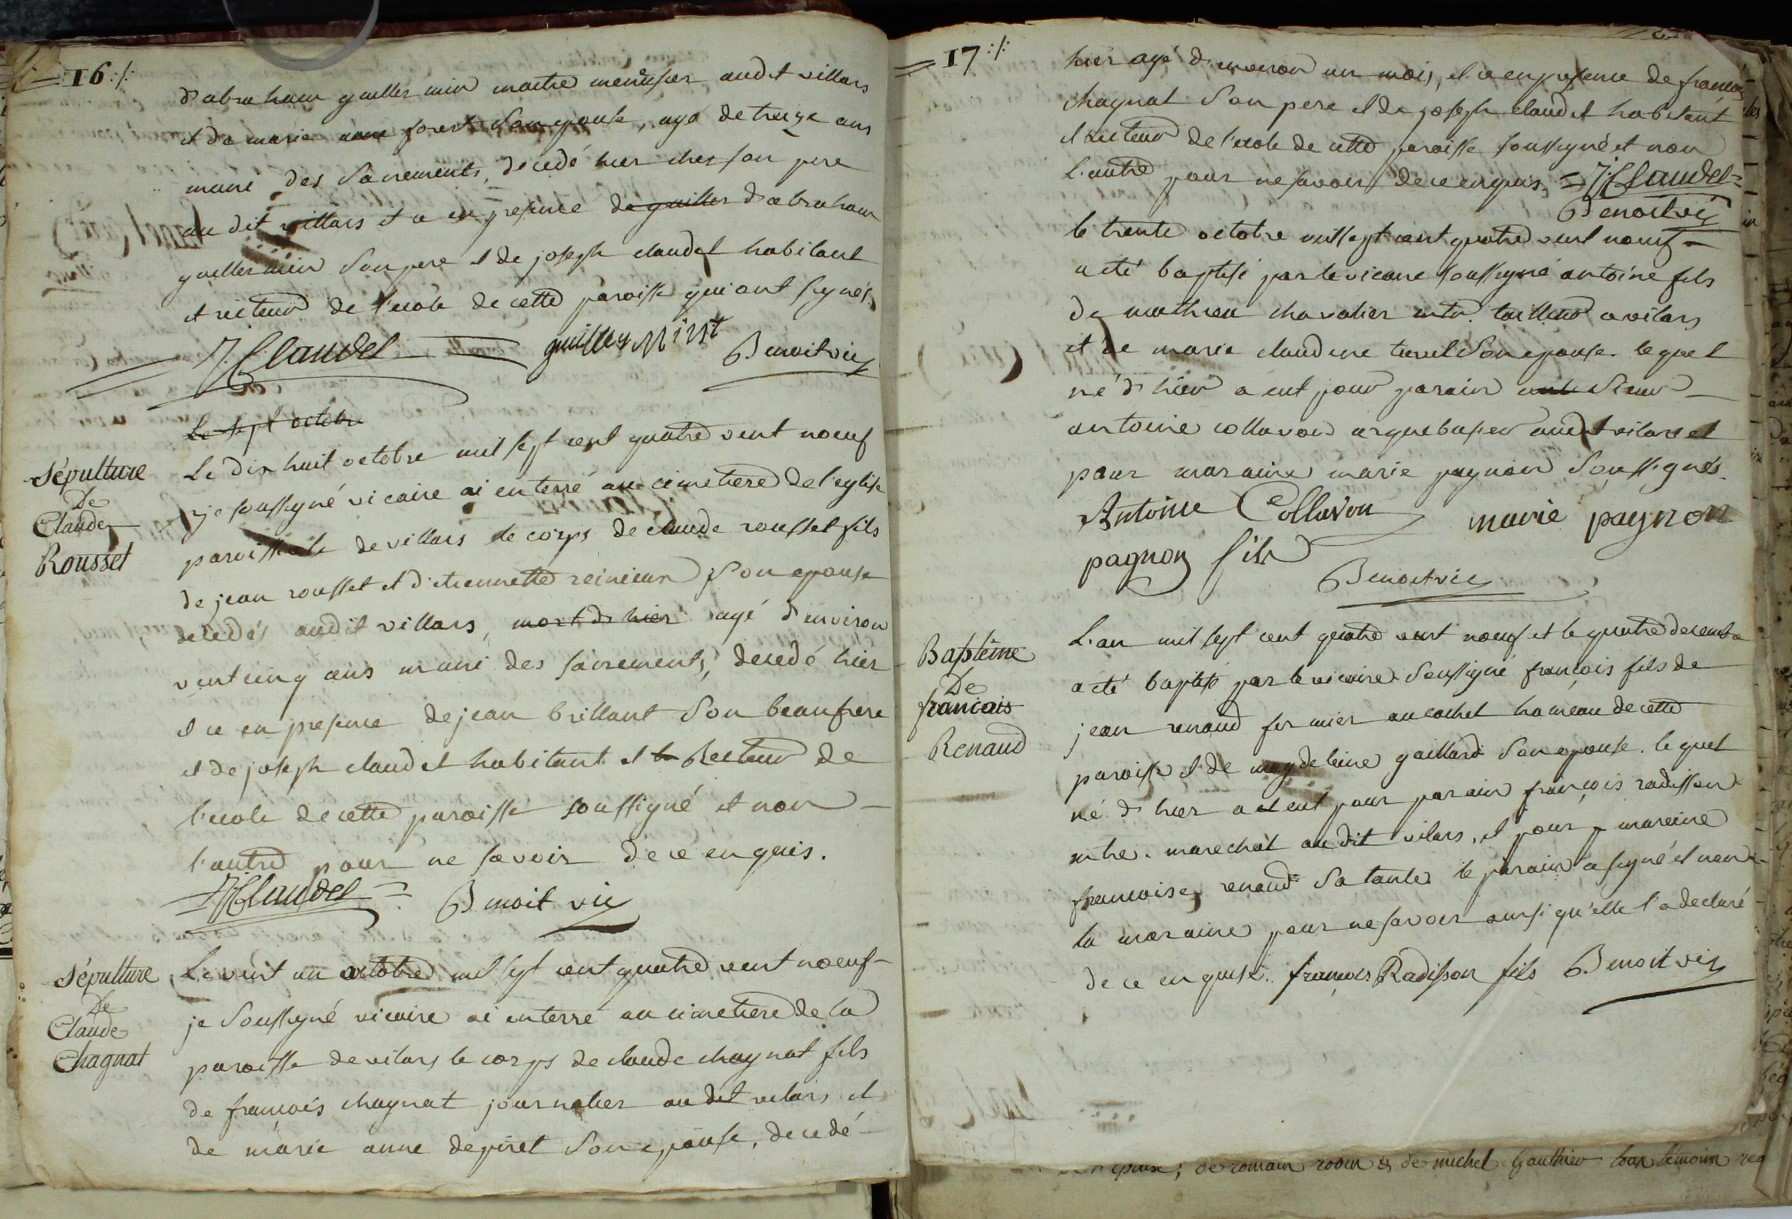 16 ./.
d'abraham guillermin maitre menuisier audit villars
et de marie anne forest son epouse, agé de treize ans
muni des sacrements, decedé hier ches son pere
au dit villars et ce en presence de guiller d'abraham
guillermin son pere et de joseph claudel habitant
et recteur de l'ecole de cette paroisse qui ont signés.
J Claudel guillerminst Benoit vic
Le sept octobre
Sépulture
De
Claude
Rousset
Le dix huit octobre mil sept cent quatre vent noeuf
je soussigné vicaire ai enterré au cimetiere de l'eglise
paroissiale de villars le corps de claude rousset fils
de jean rousset et d'etiennette son epouse
decedés audit villars, mort de hier agé d'environ
vent cinq ans muni des sacrements, decedé hier
et ce en presence de jean brillant son beaufrere
et de joseph claudel habitant et le Recteur de
l'ecole de cette paroisse soussigné et non
l'autre pour ne savoir de ce enquis.
J Claudel Benoit vic
Sépulture
De
Claude
Chagnat
Le vent un octobre mil sept cent quatre vent noeuf
je soussigné vicaire ai enterré au cimetiere de la
paroisse de vilars le corps de claude chagnat fils
de francois chagnat journalier au dit vilars et
de marie anne depiret son epouse, decedé
17 ./.
hier agé d'environ un mois, et ce en presence de francois
chagnat son pere et de joseph claudel habitant
et recteur de l'ecole de cette paroisse soussigné et non
l'autre pour ne savoir de ce enquis. J Claudel
Benoit vic
le trente octobre mil sept cent quatre vent noeuf
a eté baptisé par le vicaire soussigné antoine fils
de mathieu chavalier mtr tailleur a vilars
et de marie claudine son epouse. lequel
né d'hier a eut pour parain sieur
antoine collavon arquebusier audit vilars et
pour maraine marie pagnon soussignés.
Antoine Collavon marie pagnon
pagnon fils
Benoit vic
Baptême
De
francois
Renaud
L'an mil sept cent quatre vent noeuf et le quatre decembre
a eté baptisé par le vicaire soussigné francois fils de
jean renaud fermier au cachet hameau de cette
paroisse et de magdeleine gaillard son epouse. lequel
né d'hier a eut pour parain françois radisson
mtre. marechal audit vilars, et pour maraine
francoise renaud sa tante le parain a signé et non
la maraine pour ne savoir ainsi qu'elle l'a declaré
de ce enquise. francois Radisson fils Benoit vic
de romain robin & de michel Gauthier tous temoins